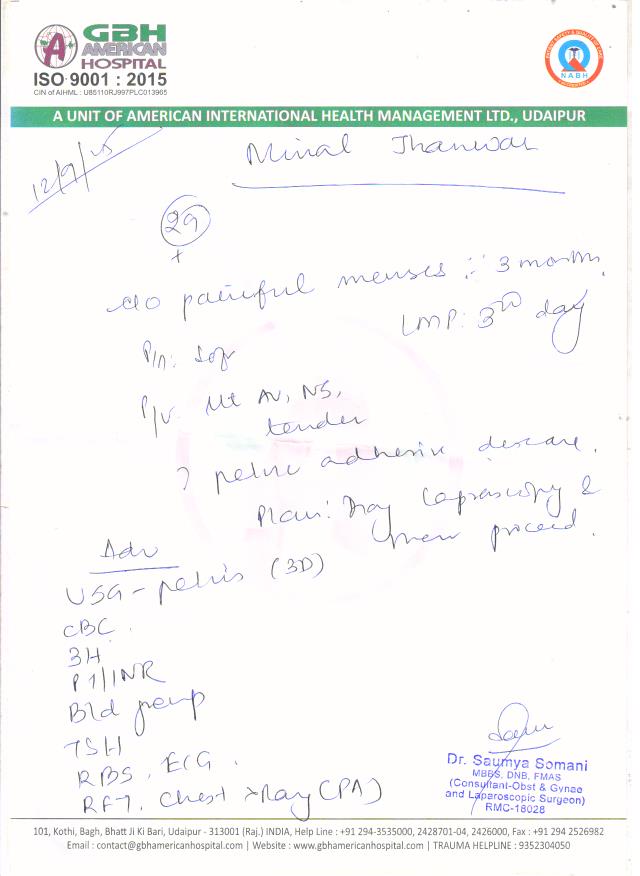 GBH
AMERICAN
HOSPITAL
ISO 9001 : 2015
CIN of AIHML : U85110RJ997PLC013965
NABH
A UNIT OF AMERICAN INTERNATIONAL HEALTH MANAGEMENT LTD., UDAIPUR
Minal Jhanwar
12/9/25
29
c/o painful menses ∵ 3 months.
LMP: 3rd day
P/A: Soft
P/V: Ut AV, NS,
tender
? pelvic adhesive disease.
Plan: Diag Laproscopy &
then proceed.
Adv
USG - pelvis (3D)
CBC.
3H
PT/INR
Bld group
TSH
RBS, ECG.
RFT, Chest xRay (PA)
Dr. Saumya Somani
MBBS, DNB, FMAS
(Consultant-Obst & Gynae
and Laparoscopic Surgeon)
RMC-18028
101, Kothi, Bagh, Bhatt Ji Ki Bari, Udaipur - 313001 (Raj.) INDIA, Help Line : +91 294-3535000, 2428701-04, 2426000, Fax : +91 294 2526982
Email : contact@gbhamericanhospital.com | Website : www.gbhamericanhospital.com | TRAUMA HELPLINE : 9352304050